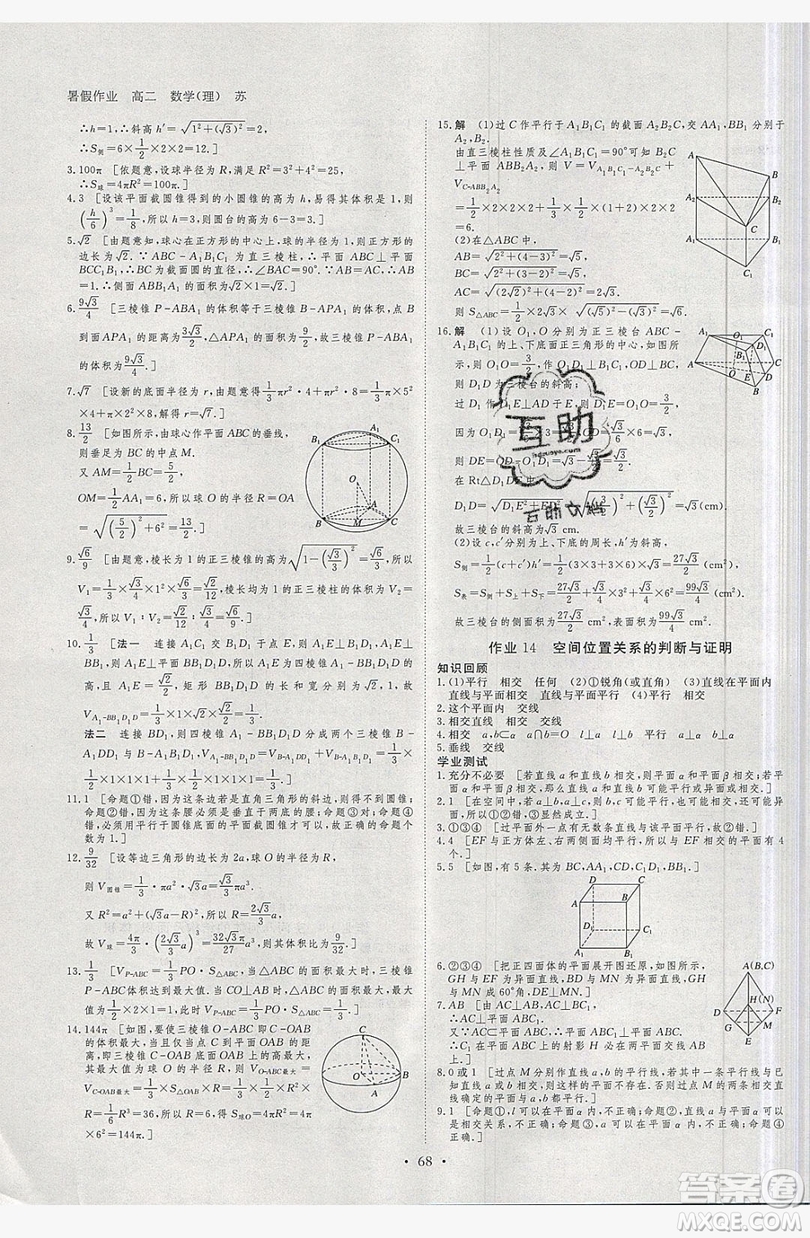 暑假作业 高二 数学(理) 苏
∴h=1,∴斜高h′=√(1²+(√3)²)=2,
∴S侧=6×1/2×2×2=12.]
3.100π [依题意,设球半径为R,满足R²=3²+4²=25,
∴S球=4πR²=100π.]
4.3 [设该平面截圆锥得到的小圆锥的高是h,易得其体积是1,则
(h/6)³=1/8,所以h=3,圆台的高为6-3=3.]
5.√2 [由题意知,球心在正方形的中心上,球的半径为1,则正方形的边
长为√2.∵三棱柱ABC-A₁B₁C₁为直三棱柱,∴平面ABC⊥平面
BCC₁B₁,∴BC为截面圆的直径,∴∠BAC=90°.∵AB=AC,∴AB
=1.]
6.9√3/4 [三棱锥P-ABA₁的体积等于三棱锥B-APA₁的体积,点B
到面APA₁的距离为3√3/2,△APA₁的面积为9/2,故三棱锥P-ABA₁
的体积为9√3/4.]
7.√7 [设新的底面半径为r,则有1/3πr²·4+πr²·8=1/3π×5²
×4+π×2²×8,解得r=√7.]
8.13/2 [如图,由球心作平面ABC的垂线,
则垂足为BC的中点M.
又AM=1/2BC=5/2,
OM=1/2AA₁=6,所以球O的半径R=OA
=√((5/2)²+6²)=13/2.]
9.√6/9 [由题意,棱长均为1的正三棱锥的高为√(1-(√3/3)²)=√6/3,所
以V₁=1/3×√3/4×√6/3=√2/12,棱长均为1的正三棱柱的体积为V₂=
√3/4×1=√3/4,所以V₁∶V₂=√2/12∶√3/4=√6/9.]
10.1/3 [法一 连接A₁C₁交B₁D₁于点E,则A₁E⊥B₁D₁,A₁E⊥BB₁,
则A₁E⊥平面BB₁D₁D,所以A₁E为四棱锥A₁-BB₁D₁D的高,
且A₁E=√2/2,矩形BB₁D₁D的长和宽分别为√2,1,故
V A₁-BB₁D₁D=1/3×1×√2×√2/2=1/3.
法二 连接BD₁,则四棱锥A₁-BB₁D₁D分成两个三棱锥B-
A₁DD₁与B-A₁B₁D₁,V A₁-BB₁D₁D=V B-A₁DD₁+V B-A₁B₁D₁=1/3×1/2
×1×1×1+1/3×1/2×1×1×1=1/3.]
11.1 [命题①错,因为这条边若是直角三角形的斜边,则得不到圆锥;命
题②错,因为这条腰必须是垂直于两底的腰;命题③对;命题④
错,必须用平行于圆锥底面的平面截圆锥才可以.故正确的命题个数
为1.]
12.9/32 [设等边三角形的边长为2a,球O的半径为R,
则V圆锥=1/3·πa²·√3a=√3/3πa³.
又R²=a²+(√3a-R)²,所以R=2√3/3a,
故V球=4π/3·(2√3/3a)³=32√3π/27a³,则其体积比为9/32.]
13.√3/3 [V P-ABC=1/3PO·S△ABC,当△ABC的面积最大时,三棱锥
P-ABC体积达到最大值.当CO⊥AB时,△ABC的面积最大,最大
值为1/2×2×1=1,此时V P-ABC=1/3PO·S△ABC=√3/3.]
14.144π [如图,要使三棱锥O-ABC即C-OAB
的体积最大,当且仅当点C到平面OAB的距
离,即三棱锥C-OAB底面OAB上的高最大,
其最大值为球O的半径R,则V O-ABC最大=
V C-OAB最大=1/3×1/2×S△OAB×R=1/3×1/2×R²×R
=1/6R³=36,所以R=6,得S球O=4πR²=4π
×6²=144π.]
15.解 (1)过C作平行于A₁B₁C₁的截面A₂B₂C,交AA₁,BB₁分别于
A₂,B₂.
由直三棱柱性质及∠A₁B₁C₁=90°可知B₂C⊥
平面ABB₂A₂,则V=V A₁B₁C₁-A₂B₂C+
V C-ABB₂A₂
=1/2×2×2×2+1/3×1/2×(1+2)×2×2
=6.
(2)在△ABC中,
AB=√(2²+(4-3)²)=√5,
BC=√(2²+(3-2)²)=√5,
AC=√((2√2)²+(4-2)²)=2√3.
则S△ABC=1/2×2√3×√((√5)²-(√3)²)=√6.
16.解 (1)设O₁,O分别为正三棱台ABC-
A₁B₁C₁的上、下底面正三角形的中心,如图
所示,则O₁O=3/2,过O₁作O₁D₁⊥B₁C₁,OD⊥BC,
则D₁D为三棱台的斜高;
过D₁作D₁E⊥AD于E,则D₁E=O₁O=3/2,
因为O₁D₁=√3/6×3=√3/2,OD=√3/6×6=√3,
则DE=OD-O₁D₁=√3-√3/2=√3/2.
在Rt△D₁DE中,
D₁D=√(D₁E²+ED²)=√((3/2)²+(√3/2)²)=√3(cm).
故三棱台的斜高为√3 cm.
(2)设c,c′分别为上、下底的周长,h′为斜高,
S侧=1/2(c+c′)h′=1/2(3×3+3×6)×√3=27√3/2(cm²),
S表=S侧+S上+S下=27√3/2+√3/4×3²+√3/4×6²=99√3/4(cm²).
故三棱台的侧面积为27√3/2 cm²,表面积为99√3/4 cm².
作业 14 空间位置关系的判断与证明
知识回顾
1.(1)平行 相交 任何 (2)①锐角(或直角) ③直线在平面内
直线与平面平行 直线与平面相交 ④平行 相交
2.这个平面内 交线
3.相交直线 相交 交线
4.相交 a,b⊂α a∩b=O l⊥a l⊥b 平行 a⊥α b⊥α
5.垂线 交线
学业测试
1.充分不必要 [若直线a和直线b相交,则平面α和平面β相交;若平
面α和平面β相交,那么直线a和直线b可能平行或异面或相交.]
2.1 [在空间中,①②④不成立,③成立.]
3.①③④ [过平面外一点有无数条直线与该平面平行,故②错.]
4.4 [EF与正方体左、右两侧面平行,所以直线EF与正方体的平面4
个平面相交.]
5.5 [如图,有5条.其中BC,AA₁,CD,C₁D₁,BB₁符合条件.]
6.②③④ [把正四面体的平面展开图还原,如
图所示,GH与EF为异面直线,BD与MN为异
面直线,GH与MN成60°角,DE⊥MN.]
7.AB [由AC⊥AB,AC⊥BC₁,
∴AC⊥平面ABC₁.
又∵AC⊂平面ABC,∴平面ABC₁⊥平面ABC.
∴C₁在平面ABC上的射影H必在两平面交线
AB上.]
8.0或1 [过点M分别作直线a、直线b的平行线,若其中一条平行线与
已知直线a或b相交,则这样的平面不存在.否则过点M的两条相交
直线确定的平面与a,b都平行.]
9.1 [命题①l可以在平面α内,是假命题;命题②直线l与平面α可以
是相交关系,是假命题;命题③直线a可以在平面α内,是假命题;命题
A₁
C₁
B₁
O
A
B
M
C
C
O
B
A
A
B
A₂
B₂
C
A₁
B₁
C₁
A₁
O₁
C₁
D₁
B₁
A
O
E
D
B
C
D
C
A
B
D₁
C₁
A₁
B₁
A(B,C)
D
H(N)
G
F
E
M
互助
百助文档
· 68 ·
答案圈
MXQE.COM